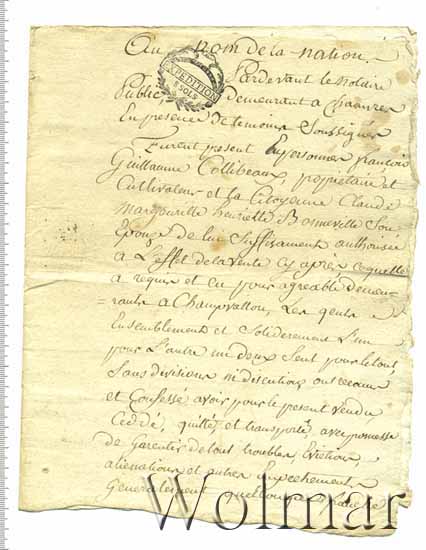 Au nom de la nation.
EXPEDITION
8 SOLS
Pardevant le Notaire
Public, demeurant a
En presence Et temoins Soussignés
Furent present En personnes françois
Guillaume Collibeaux, propriétaire et
Cultivateur et la Citoyenne Claude
henriette Bonneville Son
Epouse de lui Suffisament authorisée
a L'effet de la vente Cy après Ce quelle
a requis et eu pour agreable demeu-
=rants a Champvallon, Les quels
Ensemblement et Soliderement L'un
pour L'autre un deux Seul pour le tout
Sans divisions ni discutions ont reconu
et Confessé avoir par le present vendu
Ceddé, quitté et transporté, avec promesse
de Garentir de tout troubles, Evictions
alienations et autres Empechements
Generalement quelconques
Wolmar